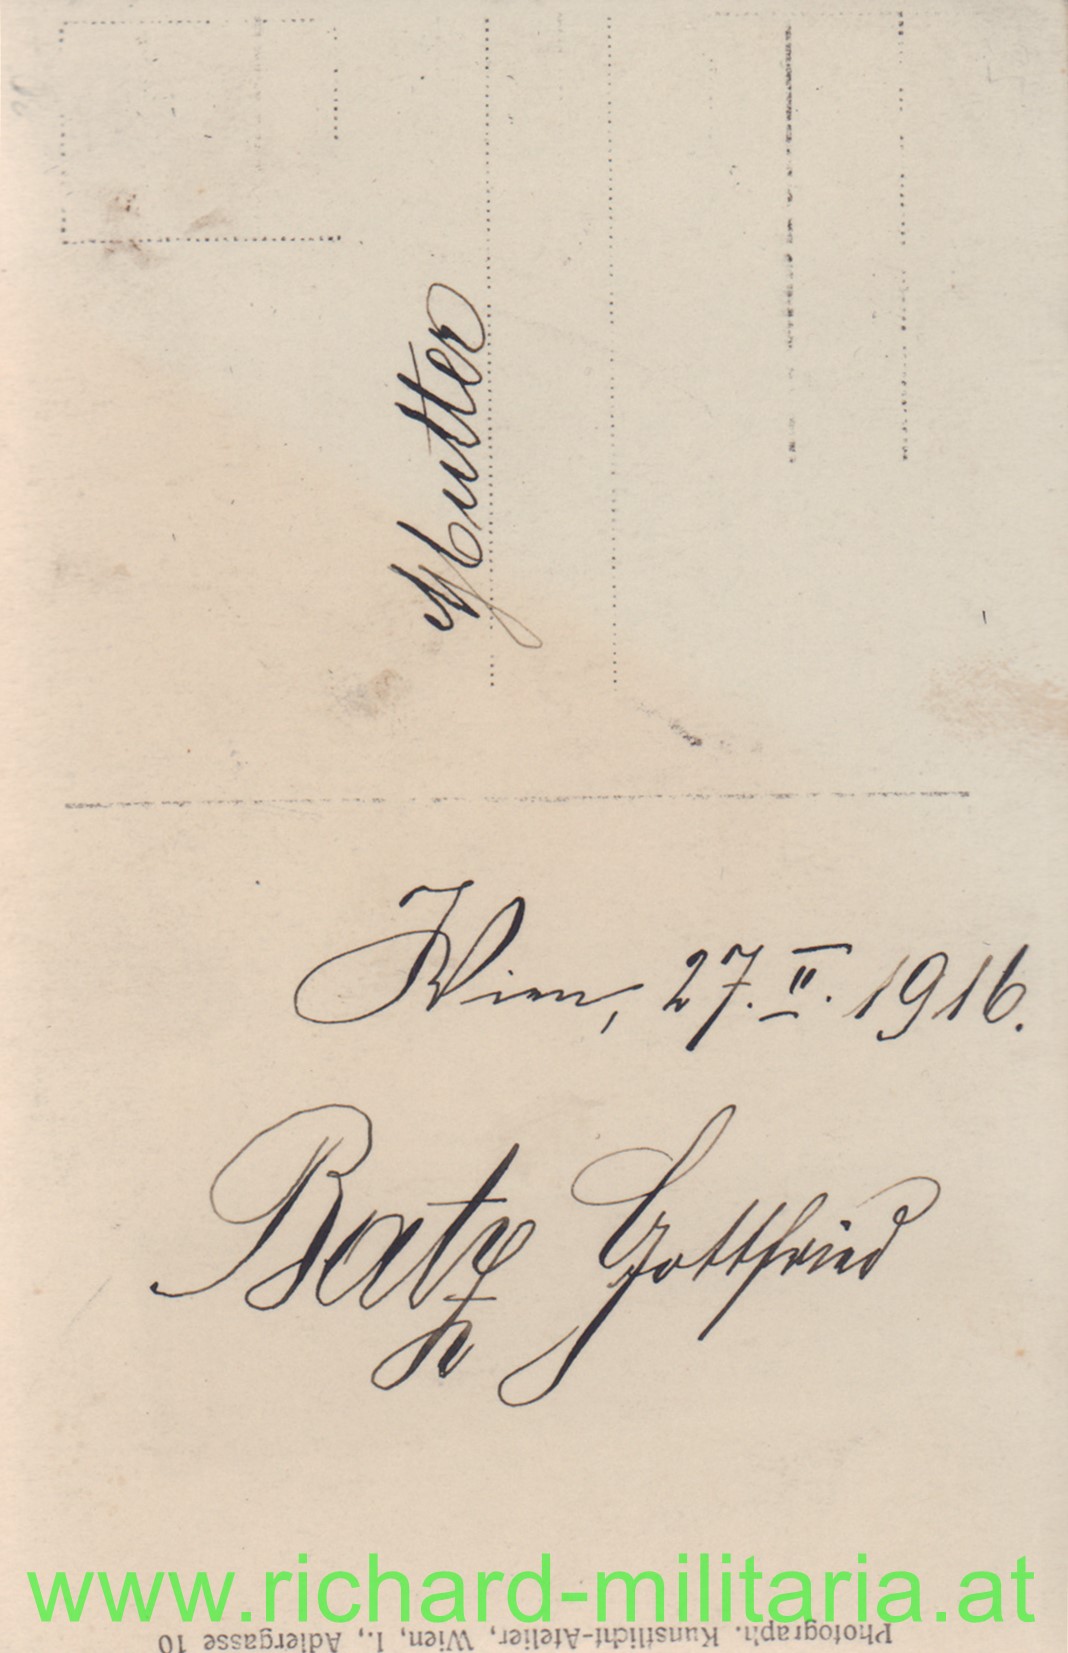 Mutter
Wien, 27. II. 1916.
Batz Gottfried
www.richard-militaria.at
Photograph. Kunstlicht-Atelier, Wien, I., Adlergasse 10